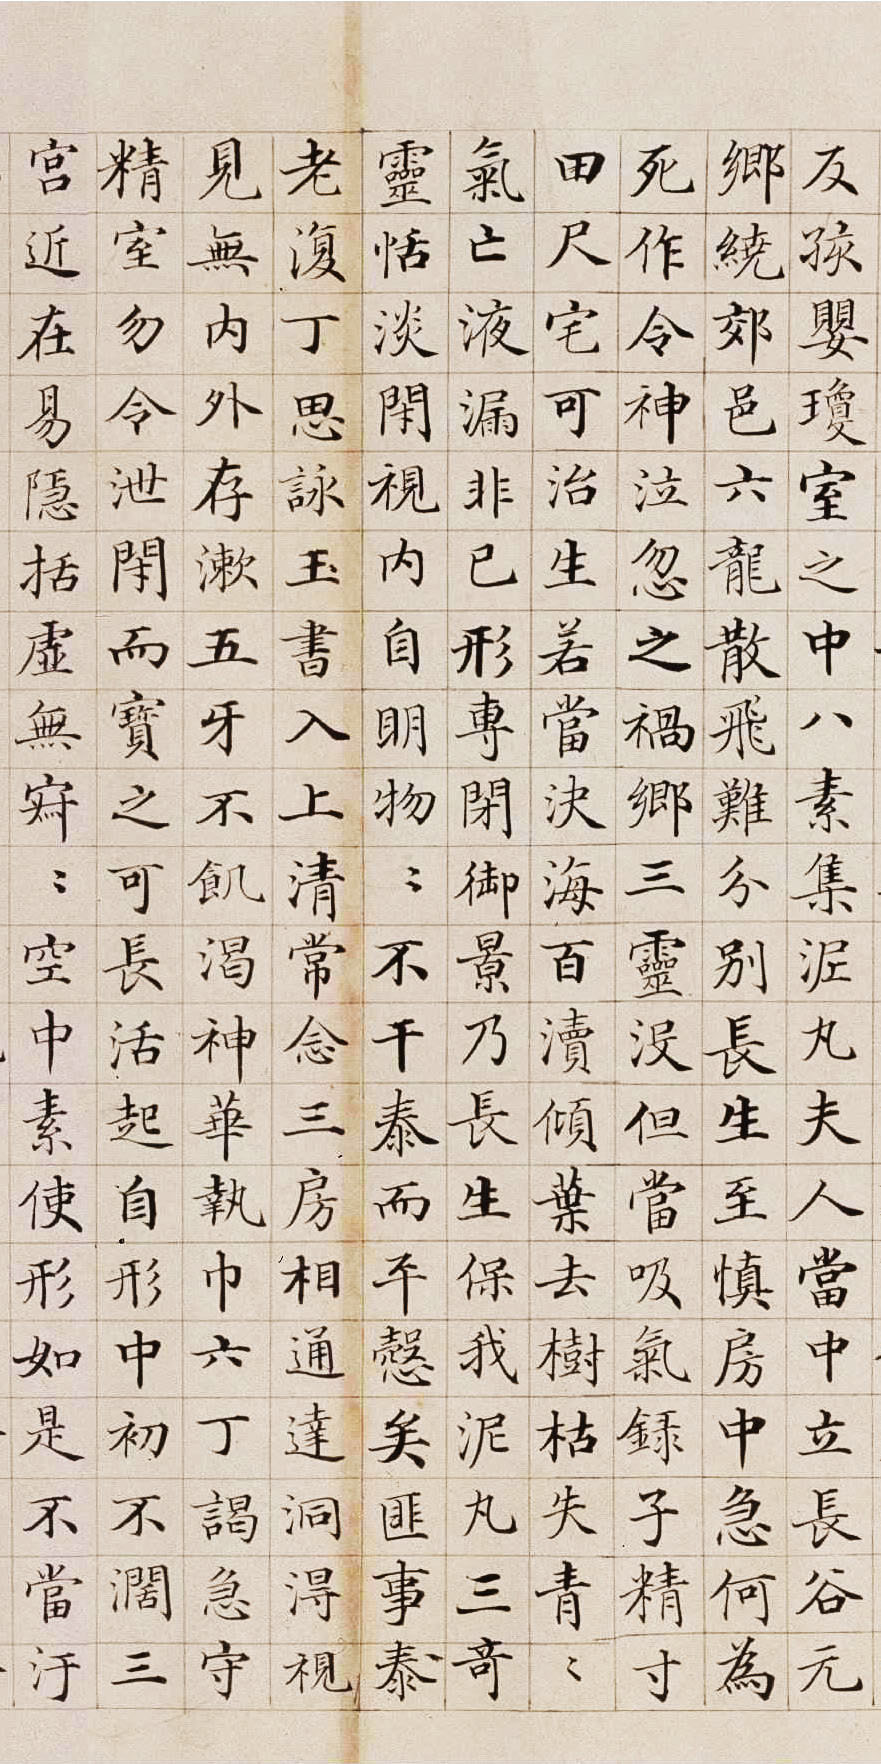 反孩嬰瓊室之中八素集泥丸夫人當中立長谷元
鄉繞郊邑六龍散飛難分別長生至慎房中急何為
死作令神泣忽之禍鄉三靈没但當吸氣録子精寸
田尺宅可治生若當決海百瀆傾葉去樹枯失青〻
氣亡液漏非己形專閉御景乃長生保我泥丸三奇
靈恬淡閑視内自明物〻不干泰而平愨矣匪事泰
老復丁思詠玉書入上清常念三房相通達洞得視
見無内外存漱五牙不飢渴神華執巾六丁謁急守
精室勿令泄閑而寶之可長活起自形中初不濶三
宫近在易隱括虛無㝛〻空中素使形如是不當汙